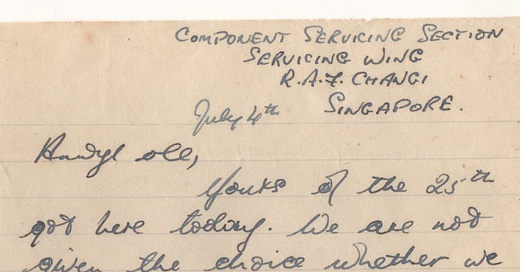 COMPONENT SERVICING SECTION
SERVICING WING
R.A.F. CHANGI
SINGAPORE.
July 4th
Annwyl oll,
Yours of the 25th
got here today. We are not
given the choice whether we